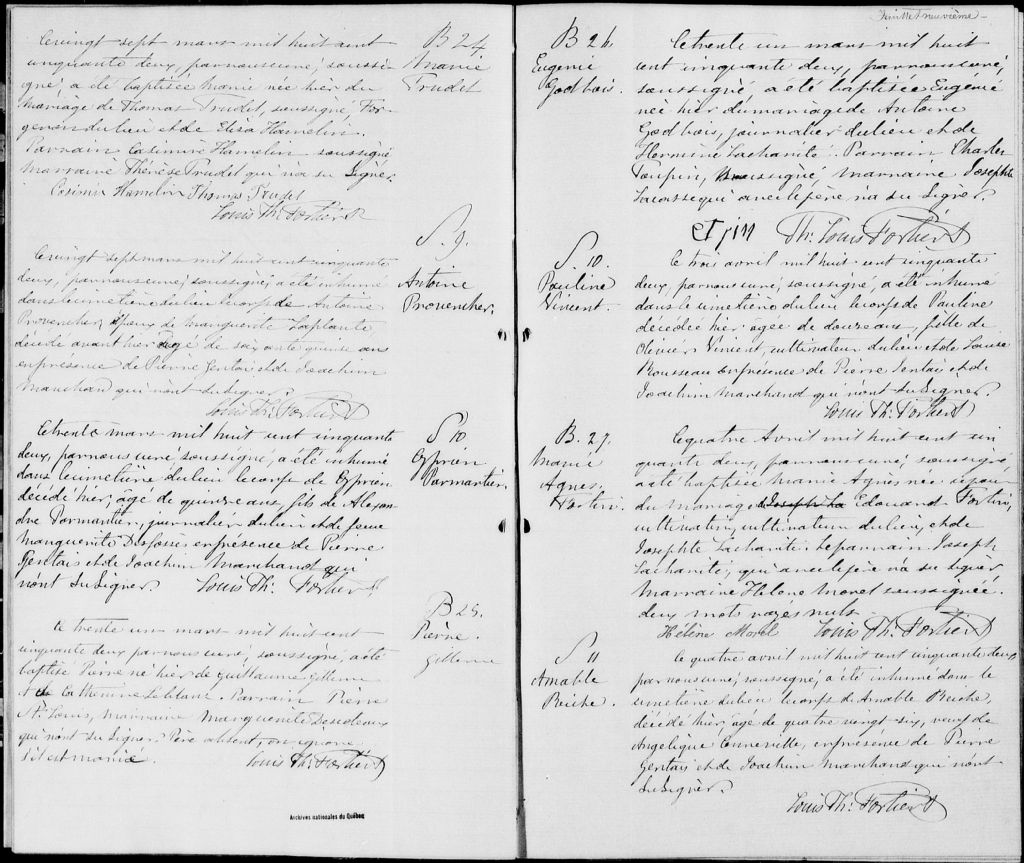 Ce vingt sept mars mil huit cent
cinquante deux, par nous curé, soussi
gné, a été baptisée Marie née hier du
mariage de Thomas Trudel, soussigné, For
geron du lieu et de Elisa Hamelin.
Parrain Casimir Hamelin soussigné
Marraine Thérèse Trudel qui n'a su Signer.
Casimir Hamelin Thomas Trudel
Louis Th: Fortier Ptr
B 24
Marie
Trudel
Ce vingt sept mars mil huit cent cinquante
deux, par nous curé, soussigné, a été inhumé
dans le cimetière du lieu le corps de Antoine
Provencher, Epoux de Marguerite Laplante
décédé avant hier agé de soixante quinze ans
en présence de Pierre Gentais et de Joachim
Marchand qui n'ont su Signer.
Louis Th: Fortier Ptr
S. 9.
Antoine
Provencher.
Ce trente mars mil huit cent cinquante
deux, par nous curé soussigné, a été inhumé
dans le cimetière du lieu le corps de Cyprien
décédé hier, agé de quinze ans fils de Alexan
dre Parmantier, journalier du lieu et de feue
Marguerite Desfossés en présence de Pierre
Gentais et de Joachim Marchand qui
n'ont su Signer. Louis Th: Fortier Ptr
S 10
Cyprien
Parmantier.
Ce trente un mars mil huit cent
cinquante deux par nous curé, soussigné, a été
baptisé Pierre né hier de Guillaume Gillerme
& de Catherine Leblanc. Parrain Pierre
St. Louis, marraine Marguerite Desedeaux
qui n'ont su Signer. Père absent, on ignore
s'il est marié. Louis Th: Fortier Ptr
B 25.
Pierre.
Gillerme
Archives nationales du Québec
feuillet neuvième
B 26.
Eugénie
Godbois.
Ce trente un mars mil huit
cent cinquante deux, par nous curé,
soussigné, a été baptisée Eugénie
née hier du mariage de Antoine
Godbois, journalier du lieu et de
Hermine Lacharité. Parrain Charles
Toupin, soussigné, marraine Josephte
Lacasse qui avec le père n'a su Signer.
Th: Louis Fortier Ptr
S. 10.
Pauline
Vincent.
Ce trois avril mil huit cent cinquante
deux, par nous curé, soussigné, a été inhumé
dans le cimetière du lieu le corps de Pauline
décédée hier agée de douze ans, fille de
Olivier Vincent, cultivateur du lieu et de Louise
Rousseau en présence de Pierre Gentais et de
Joachim Marchand qui n'ont su Signer.
Louis Th: Fortier Ptr
B. 27.
Marie
Agnes.
Fortin.
Ce quatre Avril mil huit cent cin
quante deux, par nous curé, soussigné,
a été baptisée Marie Agnès née ce jour
du mariage Edouard Fortin,
cultivateur, cultivateur du lieu, et de
Josephte Lacharité. Le parrain Joseph
Lacharité, qui avec le père n'a su signer
Marraine Hélène Morel soussignée.
deux mots rayés nuls.
Hélène Morel Louis Th: Fortier Ptr
S 11
Amable
Reiche.
Ce quatre avril mil huit cent cinquante deux,
par nous curé, soussigné, a été inhumé dans le
cimetière du lieu le corps de Amable Reiche,
décédé hier, agé de quatre vingt-six, veuf de
Angelique Enneville, en présence de Pierre
Gentais et de Joachim Marchand qui n'ont
su Signer.
Louis Th: Fortier Ptr